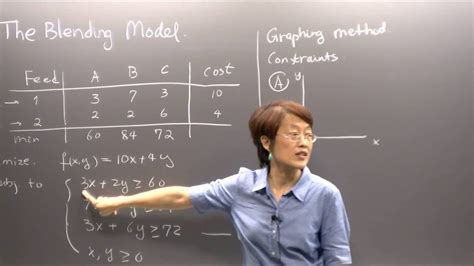 The Blending Model.
Feed A B C Cost
→ 1 3 7 3 10
→ 2 2 2 6 4
min 60 84 72
mize. f(x,y) = 10x+4y
bj to 3x + 2y ≥ 60
3x + 6y ≥ 72
x, y ≥ 0
Graphing method
Constraints
A y
x